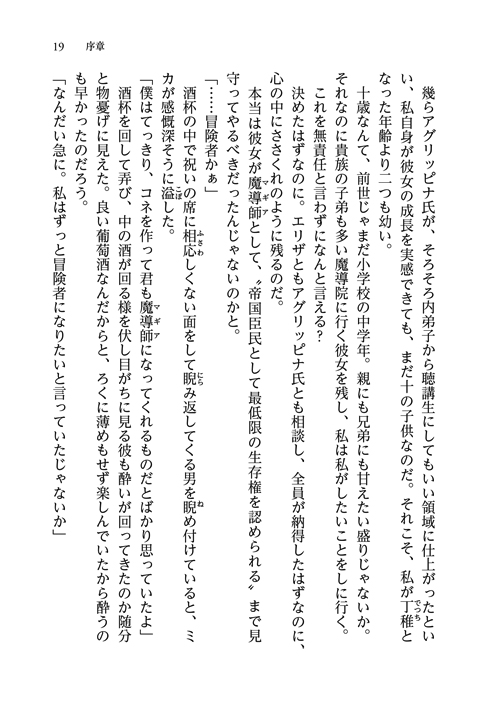 19　序章
幾らアグリッピナ氏が、そろそろ内弟子から聴講生にしてもいい領域に仕上がったとい
い、私自身が彼女の成長を実感できても、まだ十の子供なのだ。それこそ、私が丁稚と
なった年齢より二つも幼い。
十歳なんて、前世じゃまだ小学校の中学年。親にも兄弟にも甘えたい盛りじゃないか。
それなのに貴族の子弟も多い魔導院に行く彼女を残し、私は私がしたいことをしに行く。
これを無責任と言わずになんと言える？
決めたはずなのに。エリザともアグリッピナ氏とも相談し、全員が納得したはずなのに、
心の中にささくれのように残るのだ。
本当は彼女が魔導師として、〝帝国臣民として最低限の生存権を認められる〟まで見
守ってやるべきだったんじゃないのかと。
「……冒険者かぁ」
酒杯の中で祝いの席に相応しくない面をして睨み返してくる男を睨め付けていると、ミ
カが感慨深そうに溢した。
「僕はてっきり、コネを作って君も魔導師になってくれるものだとばかり思っていたよ」
酒杯を回して弄び、中の酒が回る様を伏し目がちに見る彼も酔いが回ってきたのか随分
と物憂げに見えた。良い葡萄酒なんだからと、ろくに薄めもせず楽しんでいたから酔うの
も早かったのだろう。
「なんだい急に。私はずっと冒険者になりたいと言っていたじゃないか」